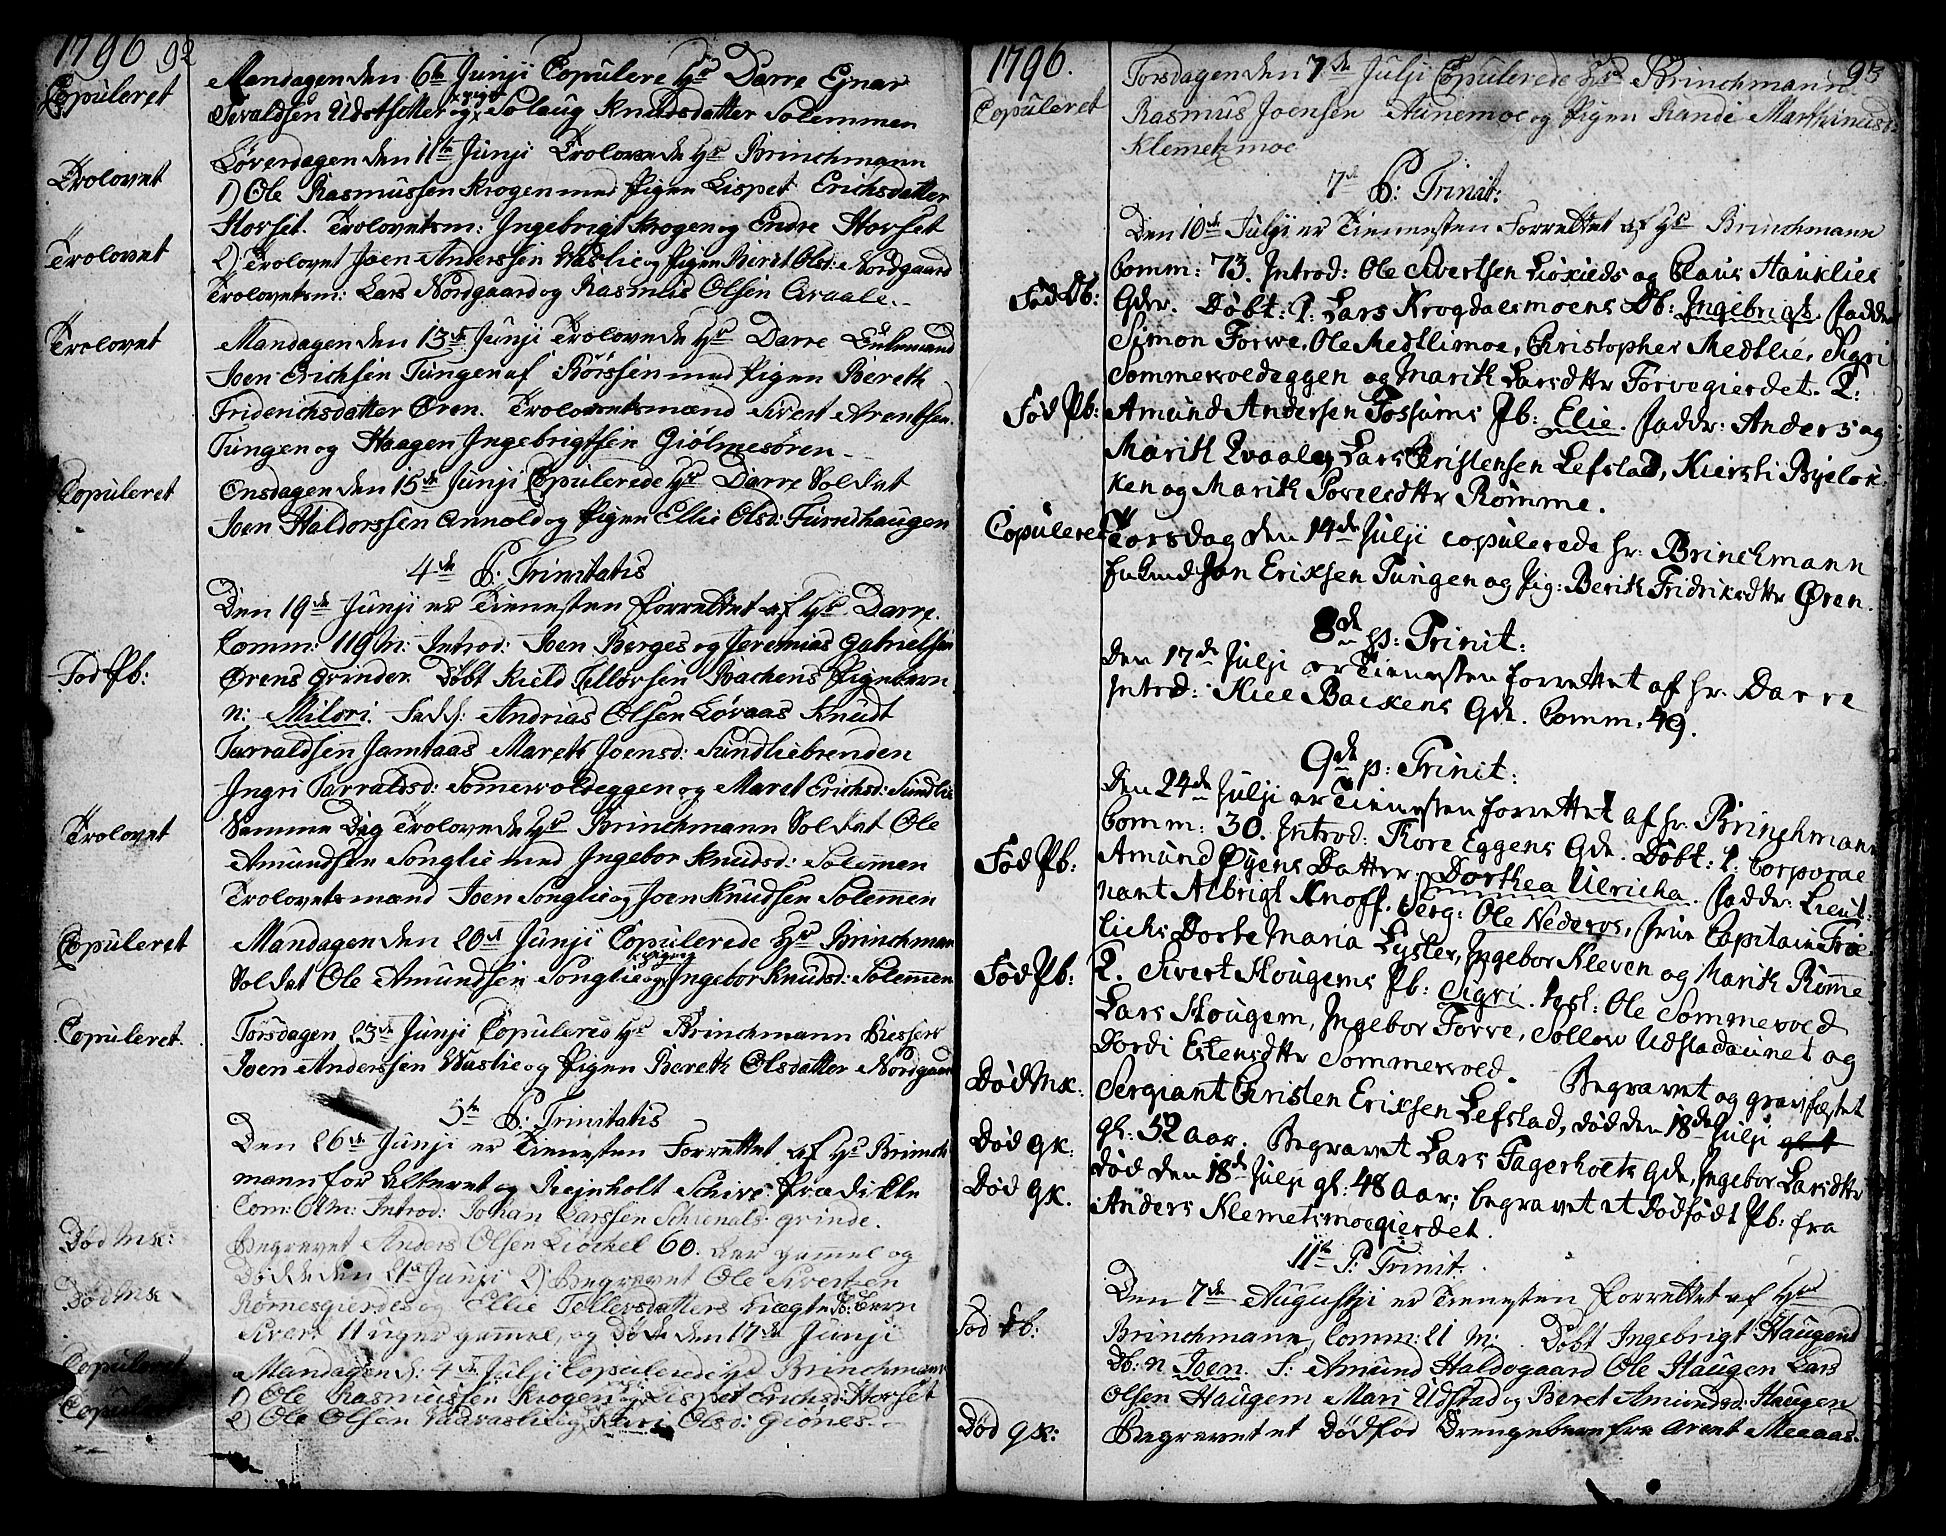 1796 92
Copuleret
Mandagen den 6te Junji Copulere Hr Darre Ejnar
Tevaldsen Udstsetter og pigen Solaug Knudsdatter Solemmen
Trolovet
Løverdagen den 11te Junji Trolovede Hr Brinchmann
1) Ole Rasmussen Krogen med Pigen Lispet Erichsdatter
Horset. Trolovetsm: Ingebrigt Krogen og Endre Horset
Trolovet
2) Trolovet Joen Anderssen Waslie og Pigen Berit Olsd: Nordgaard
Trolovetsm: Lars Nordgaard og Rasmus Olsen Qvaale.
Trolovet
Mandagen den 13de Junji Trolovede Hr Darre Enkemand
Joen Erichsen Tungen af Børssen med Pigen Bereth
Friderichsdatter Øren. Trolovetsmænd Sivert Arentsen
Tungen og Haagen Ingebrigtsen Giølmesøren
Copuleret
Onsdagen den 15de Junji Copulerede Hr Darre Soldat
Joen Haldorssen Annold og Pigen Ellie Olsd: Furredhaugen
4de P: Trinitatis
Den 19de Junji er Tienesten forrettet af Hr Darre.
Comm: 119 M: Introd: Joen Berges og Jeremias Gabrielsen
Fød Pb:
Ørens Qvinder. Døbt Kield Tellefsen Bachens Pigebarn
n: Mildri. Fadd: Andrias Olsen Løvaas Knudt
Tarraldsen Jamtaas Mareth Joensd: Sundliebrenden
Ingri Tarraldsd: Sommervoldeggen og Maret Erichsd: Sundlie
Trolovet
Samme Dag Trolovede Hr Brinchmann Soldat Ole
Amundsen Songlie med Ingebor Knudsd: Solemmen
Trolovetsmænd Joen Songlie og Joen Knudsen Solemmen
Copuleret
Mandagen den 20de Junji Copulerede Hr Brinchman
Soldat Ole Amundsen Songlie og pigen Ingebor Knudsd: Solemmen
Copuleret.
Torsdagen 23de Junji Copulered Hr Brinchmann
Joen Anderssen Waslie og Pigen Bereth Olsdatter Nordgaard
5te P: Trinitatis
Den 26de Junji er Tienesten Forrettet af Hr Brinch
mann for Alteret og Rejnholt Schive Prædikte
Com: M: Introd: Johan Larssen grinde.
Død Mk:
Begravet Anders Olsen Liøckel 60. aar gamel og
Døde den 21de Junji 2) Begravet Ole Sivertsen
Død Mk
Rømesgierdes og Ellie Tellevsdatters Uægte Db: barn
Sivert 11 uger gammel, og Døde den 17de Junji
Copuleret
Mandagen d: 4de Julji Copulerede Hr Brinchmann
1) Ole Rasmussen Krogen og Lispet Erichsd: Horset
Copuleret
2) Ole Olsen og Kari Olsd: Giones.
1796. 93
Copuleret
Torsdagen den 7de Julji Copulerede Hr Brinchmann
Rasmus Joensen Aunemoe og Pigen Randi Marthinusd:
Klemetzmoe
7de P: Trinit:
Den 10de Julji er Tienesten Forrettet af Hr Brinchmann
Comm: 73. Introd: Ole Sivertsen Lioxieds og Claus Hauklies
Fød Db:
Gdr. Døbt: 1: Lars Krogdalsmoens Db: Ingebrigt. Fadder
Simon Forwe, Ole Medtlimoe, Christopher Medtlie, Sigri
Sommervoldeggen og Marith Larsdttr Forvegierdet. 2:
Fød Pb:
Amund Andersen Fossums Pb: Elie. Faddr: Anders og
Marith Qvaale, Lars Cristensen Lefstad, Kiersti Byeløk-
ken og Marith Povelsdttr Rømme.
Copuleret
Torsdag den 14de Julji copulerede hr: Brinchmann
Enkmd Jon Eriksen Tungen og Pig: Berith Fridriksdttr Øren.
8de p: Trinit:
Den 17de Julji er Tienesten forrettet af hr. Darre
Introd: Kiel Backens Gdr. Comm. 49.
9de p: Trinit:
Den 24de Julji er Tienesten forrettet af hr. Brinchmann
Comm: 30. Introd: Tore Eggens Gdr. Døbt: 1: Corporal
Fød Pb:
Amund Øyens Datter, Dorthea Ulricha. Faddr: Lieut-
nant Albrigt Knoff. Serg: Ole Nederos, Frue Capitain Frø-
lichs Dorte Maria Lysler, Ingebor Kleven og Marith Rømme
Fød Pb:
2. Sivert Hougems Pb: Sigri. test: Ole Sommervold
Lars Hougem, Ingebor Forve, Sollow Udstadaunet og
Dordi Estensdttr Sommervold. Begravet og gravfæstet
Død Mk:
Sergiant Christen Eriksen Lefstad, død den 18de Julji
gl: 52 aar. Begravet Lars Fagerholts Gdr, Ingebor Larsdttr
Død qk:
død den 18de Julji gl: 48 aar; begravet et dødfødt Pb: fra
Død qk.
Anders Klemetsmoegierdet.
11te P: Trinit:
Den 7de Augustji er Tienesten forrettet af Hr
Fød Db:
Brinchmann, Comm: 21 M: Døbt Ingebrigt Haugens
Db: n Joen. F: Amund Haldogaard Ole Haugen Lars
Olsen Haugem Mari Udstad og Beret Amundsd: Haugen
Død qk:
Begravet et Dødfød Drengebarn fra Arent Meaaas.